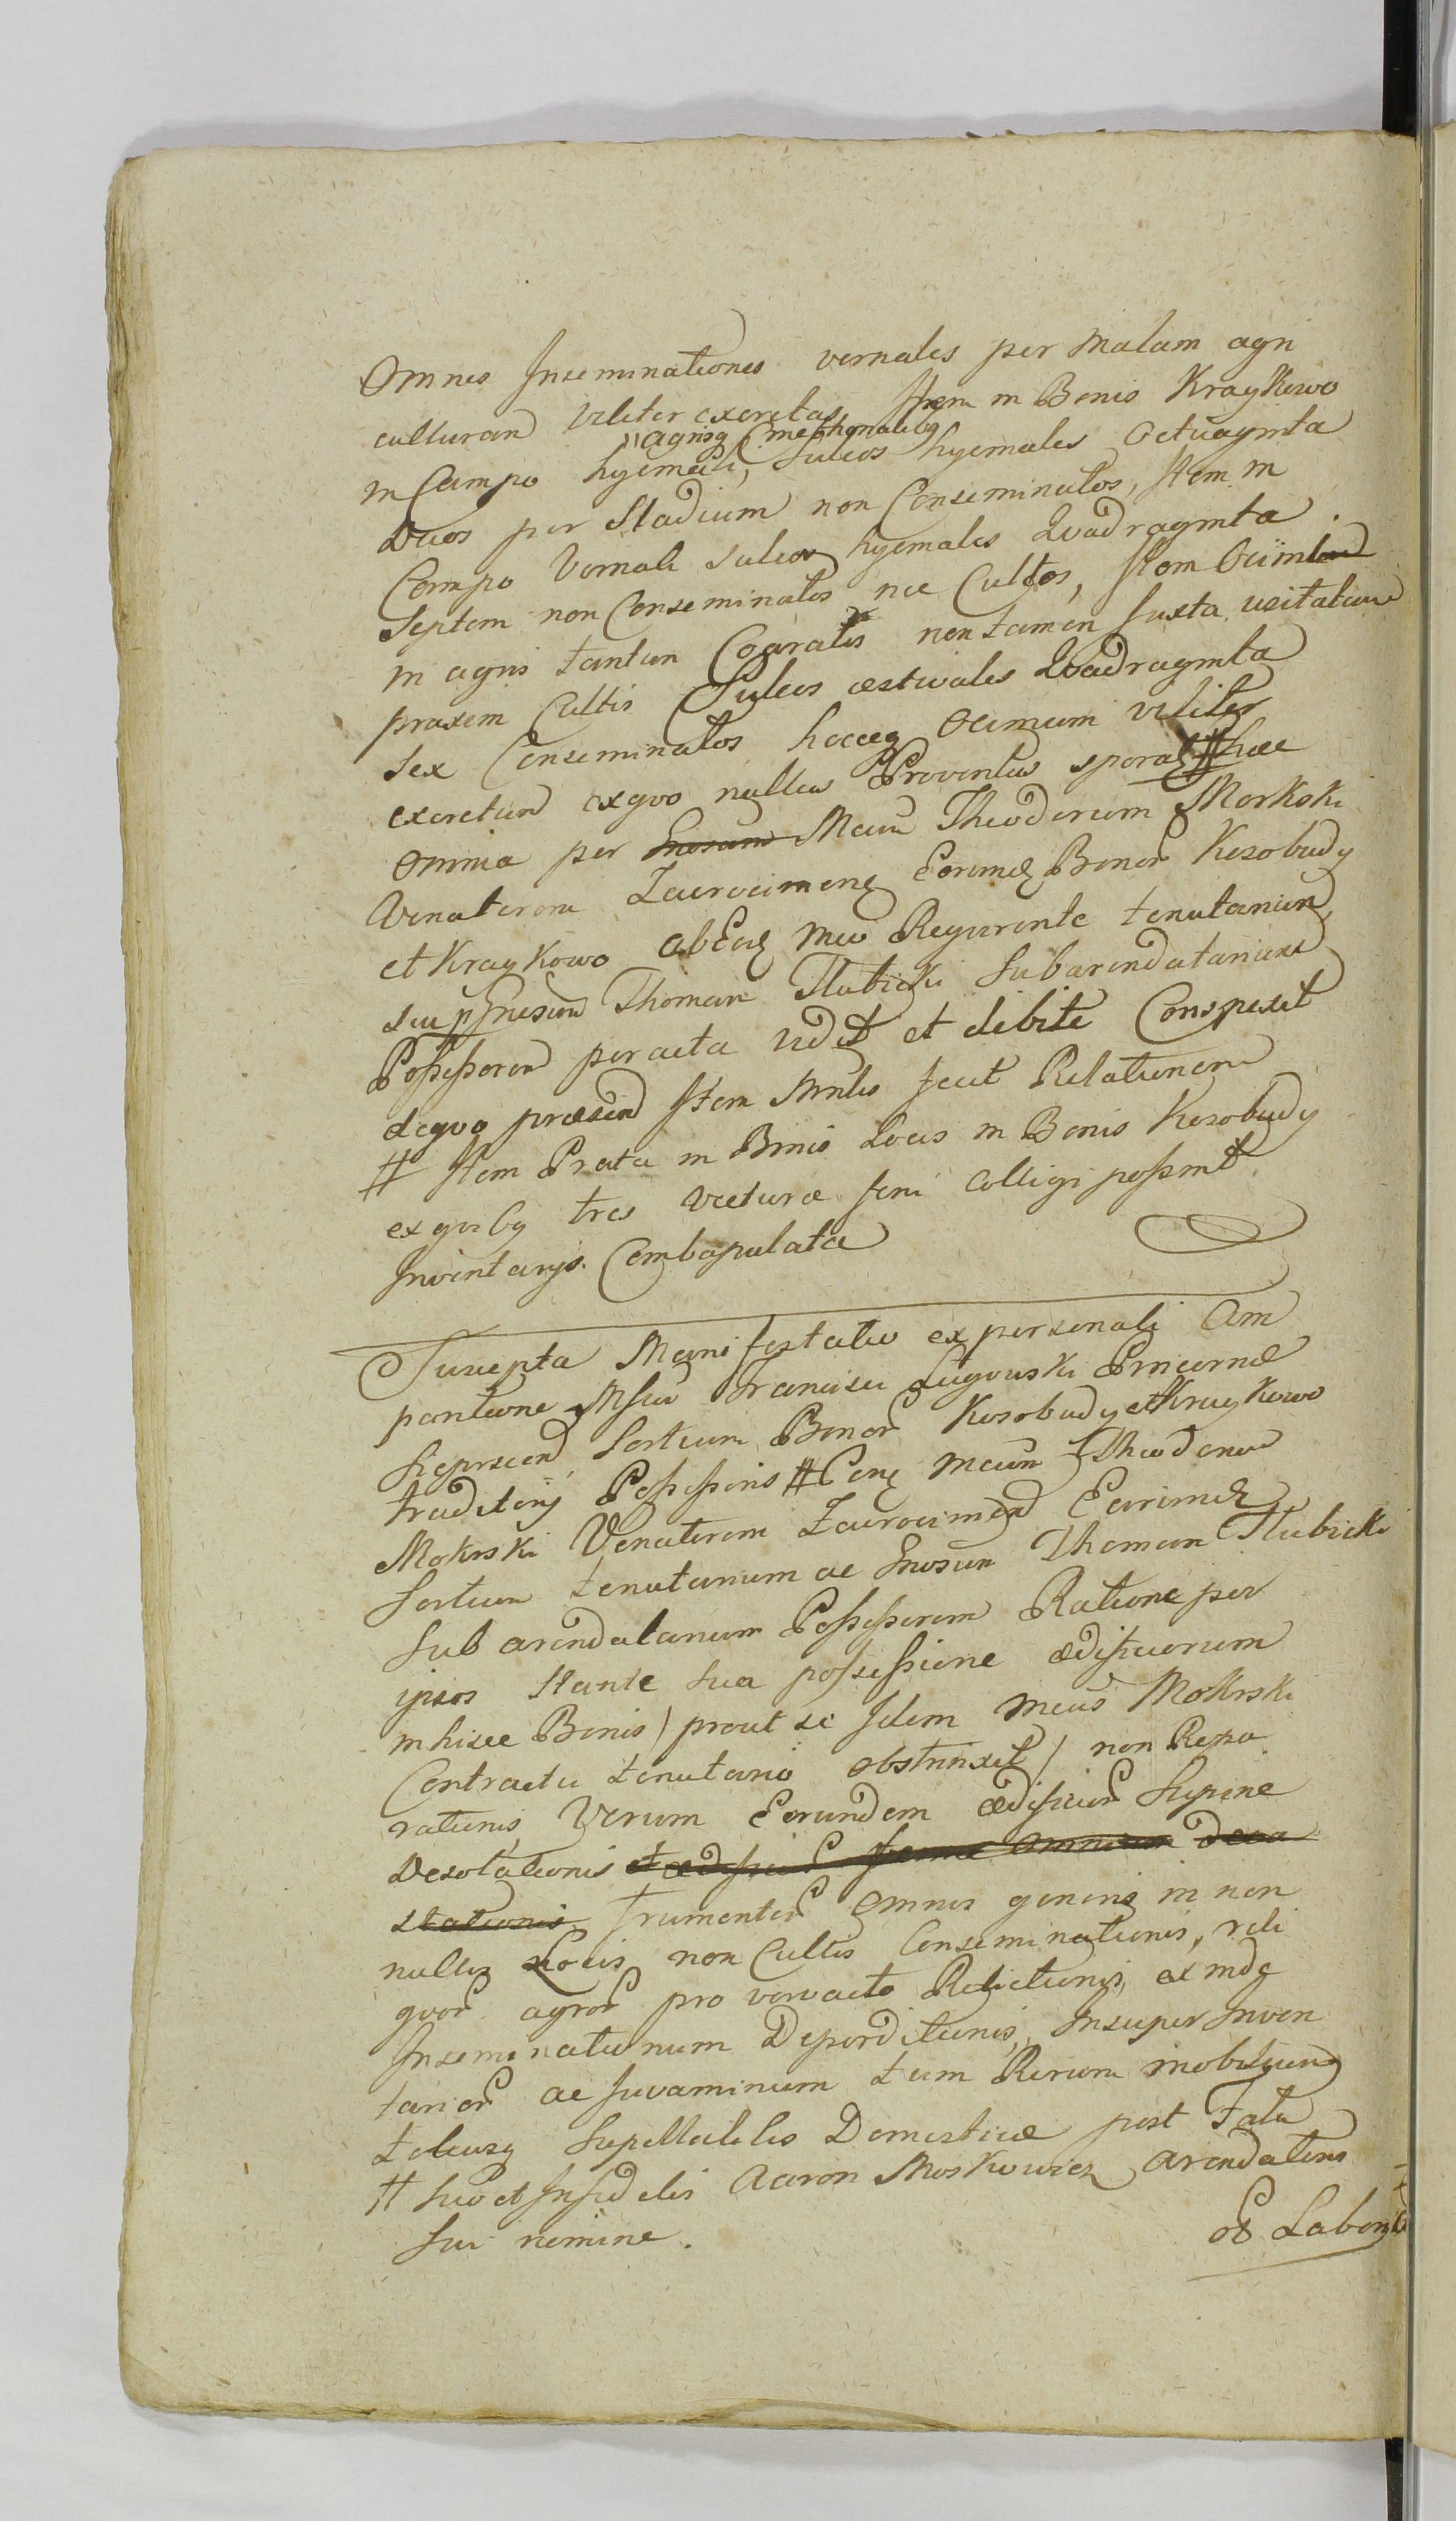 Omnes Inseminationes vernales per malam agri
culturam viliter exeretas, Item in Bonis Kraykowo
in Campo hyemali, "agrisq Cmethonalibq sulcos hyemales Octuaginta
Duos per Stadium non Conseminatos, Item in
Campo Vernali sulcos hyemales Quadraginta
Septem non Conseminatos nec Cultos, Item
in agris tantum non tamen Juxta usitatam
praxem Cultis Sulcos æstivales Quadraginta
Sex Conseminatos hocceq Ocimum viliter
exeretum exquo nullus Proventus sperat # hæc
Omnia per Gnosum Mcum Theodorum Mokrski
Venatorem Zacrocimenq Eorundq Bonor Kosobudy
et Kraykowo ab Eodq Mco Requirente tenutarium
seu p Gnosum Thomam Tłubicki Subarendatarium
Possessorem peracta vidit et debite Conspexit
dequo præsend Item Mnlis fecit Relationem
# Item Prata in Binis Locis in Bonis Kosobudy
ex quibq tres vecturæ feni colligi possint
Inventarys. Combapulata
Suscepta Manifestatio ex personali Com
paritione Francisci Ługowski
Sortium Bonor Kosobudy et Kraykowo
traditorij Possessoris # Conq Mcum Theodorum
Mokrski Venatorem Zacrocimen Earundq
Sortium tenutarium ac Gnosum Thomam Tłubicki
Sub arendatarium Possessorem Ratione per
ipsos stante sua possessione ædificiorum
in hisce Bonis / prout se Idem Mcus Mokrski
Contractu tenutario obstrinxit / non Repa
rationis, Verum Eorundem ædificior Supine
Desolationis et ædificior ferme omnium deva
stationis, Frumentor Omnis generis in non
nullis Locis non Cultis Conseminationis, reli
quor agror pro vervacto Relictionis, ex indq
Inseminationum Deperditionis, Insuper Inven
tarior ac Juvaminum tum Rerum mobilium
totiusq Supellectilis Domesticæ post Fata
# suo et Infidelis Aaron Moskowicz arendatoris
sui nomine.